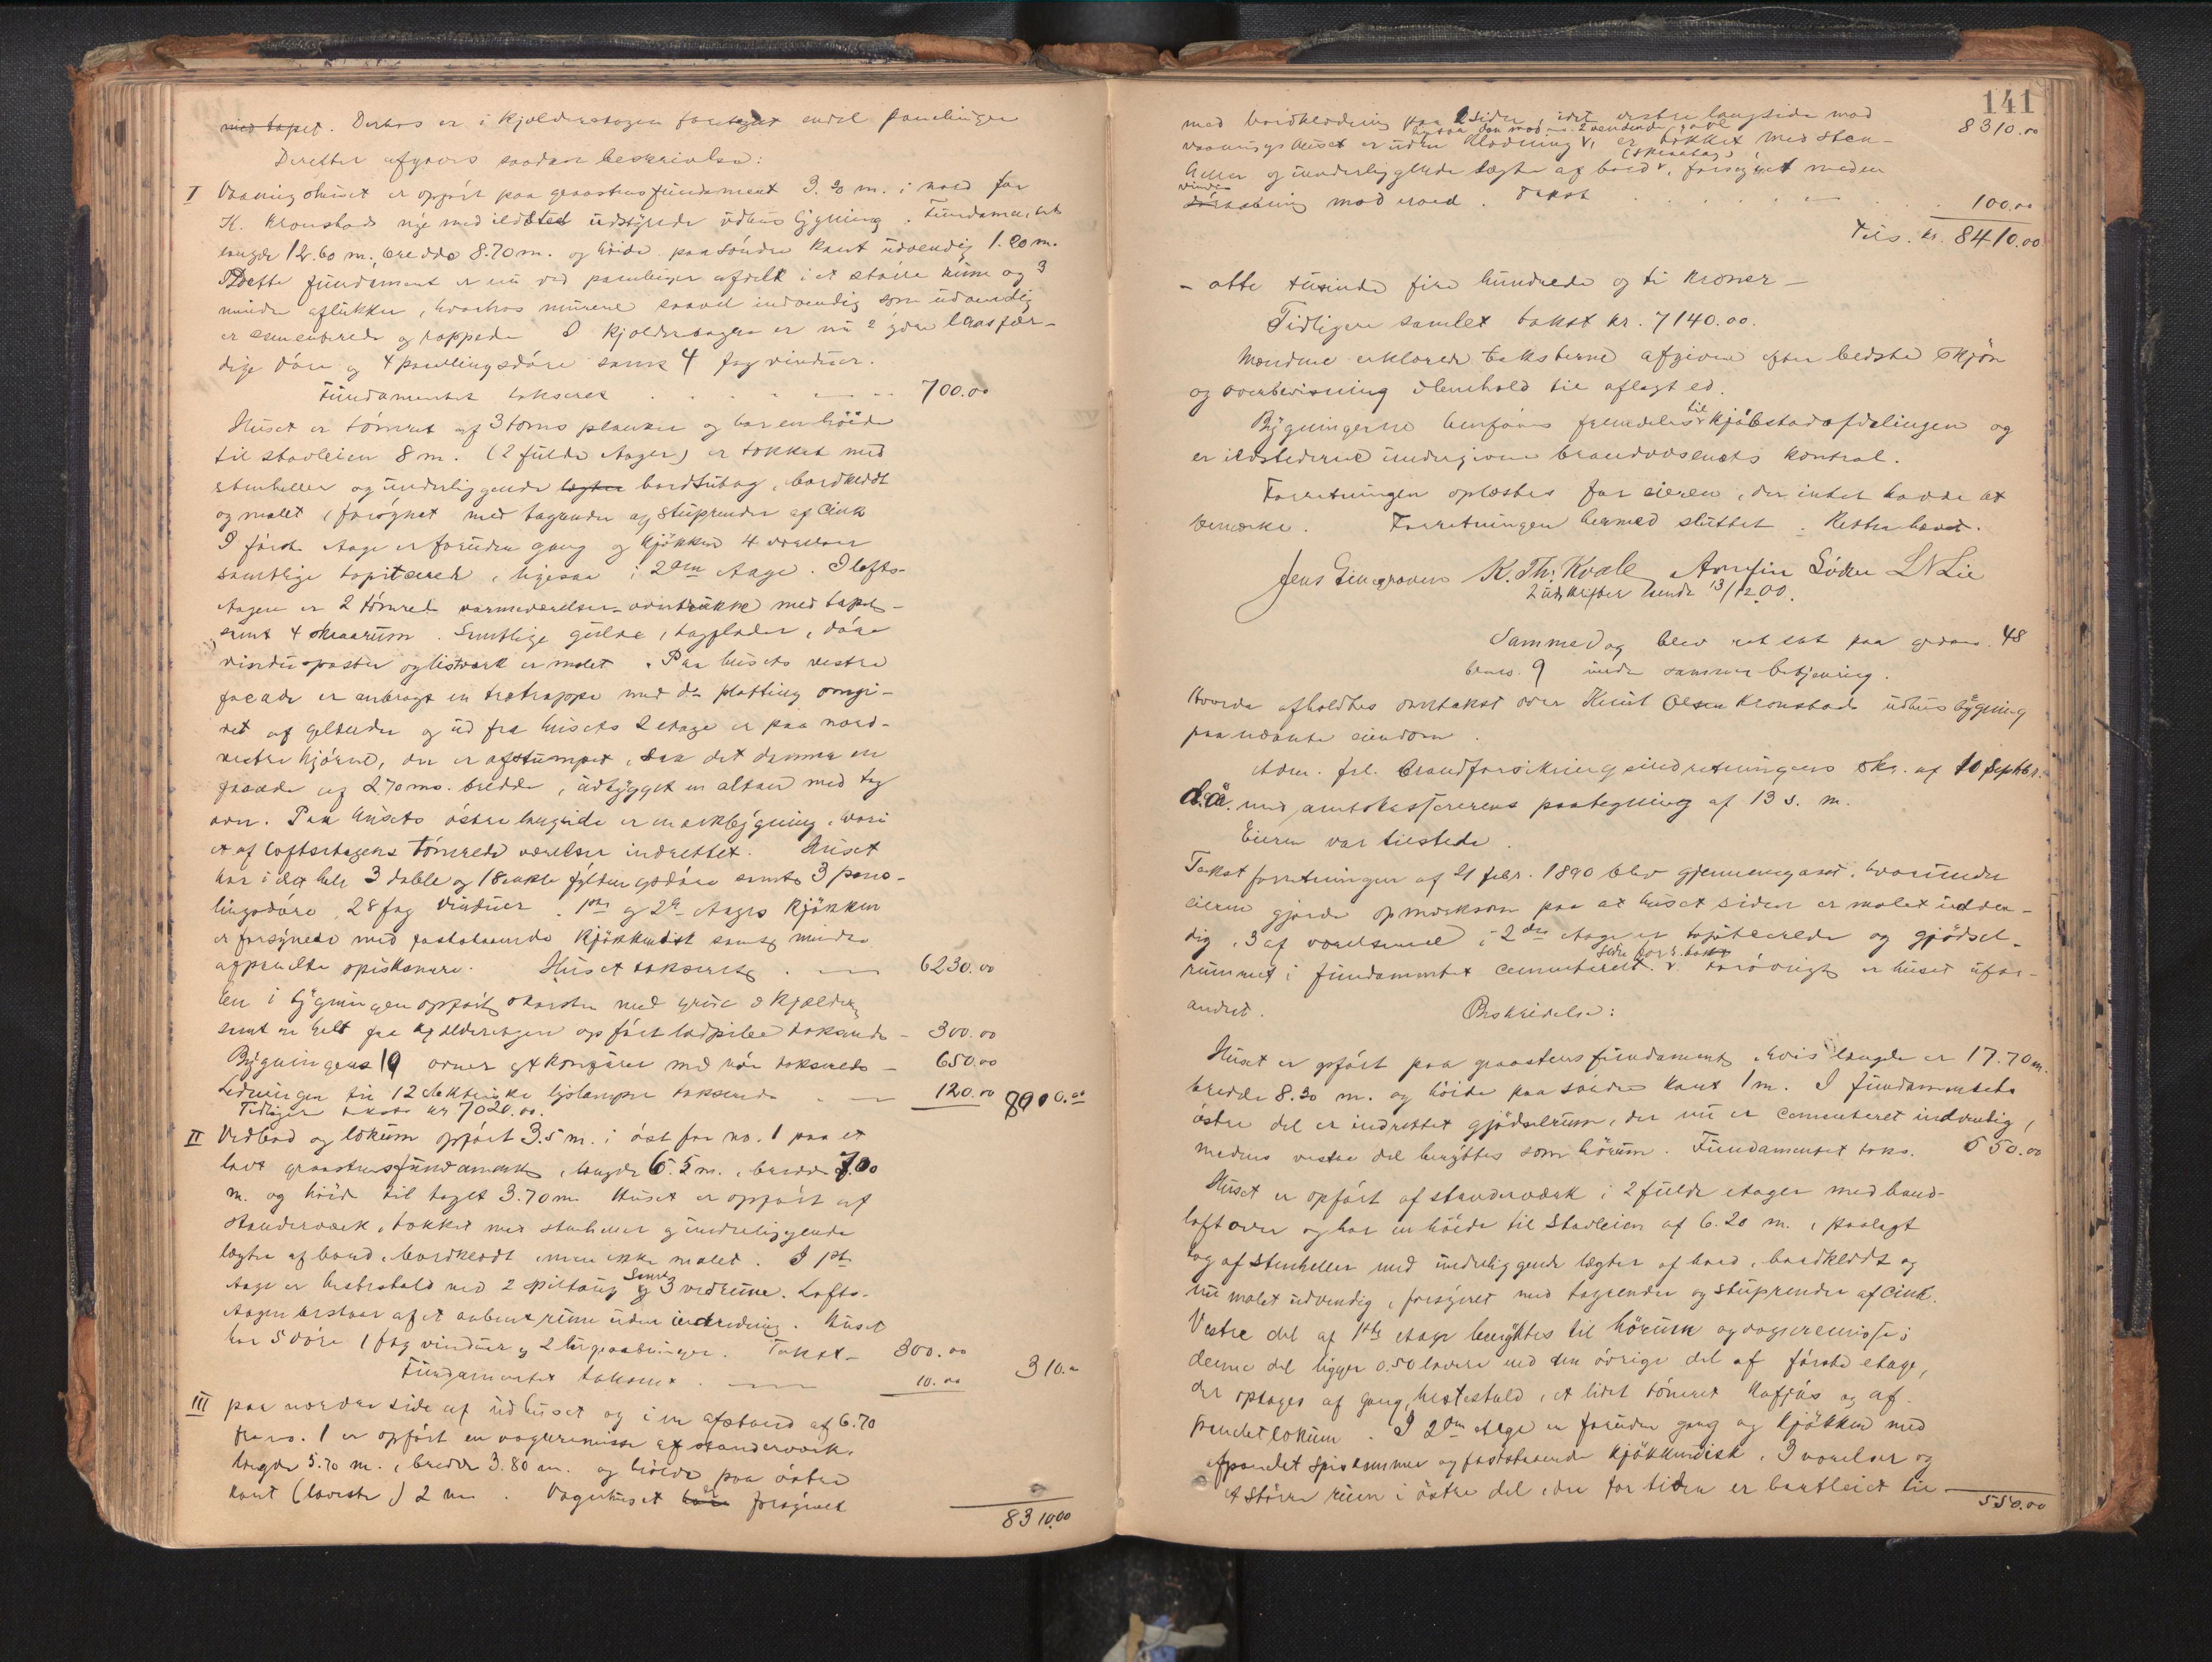 med tapet. Derhos er i kjælderetagen foretaget endel panelinger
Derefter afgaves saadan beskrivelse:
I Vaaningshuset er opført paa graastensfundament 3.20 m. i nord for
K. Kronstads nye med ildsted udstyrede udhusbygning. Fundamentets
længde 12.60 m., bredde 8.70 m. og høide paa søndre kant udvendig 1.20 m.
Dette fundament er nu ved panelinger afdelt i et større rum og 3
mindre aflukker, hvorhos murene saavel indvendig som udvendig
er cementerede og rappede. I kjælderetagen er nu 2 ydre laasfær-
dige døre og 4 panelingsdøre samt 4 fag vinduer.
Fundamentet takseret 700.00
Huset er tømret af 3 toms planker og har en høide
til stavleien 8 m. (2 fulde etager) er tækket med
stenheller og underliggende lægter bordsutag, bordklædt
og malet, forsynet med tagrender og stuprender af cink
I første etage er foruden gang og kjøkken 4 værelser
samtlige tapiserede, ligesaa i 2den etage. I lofts-
etagen er 2 tømrede varmeværelser overtrukne med tapet
samt 4 skraarum. Samtlige gulve, tagflader, døre
vinduposter og listværk er malet. Paa husets vestre
facade er anbragt en trætrappe med do platting omgi-
vet af gelænder og ud fra husets 2 etage er paa nord-
vestre hjørne, der er afstumpet, saa det danner en
facade af 2.70 ms. bredde, udbygget en altan med tag
over. Paa husets østre langside er en arkbygning, hvori
et af loftsetagens tømrede værelser indrettet. Huset
har i det hele 3 doble og 18 enkle fyldingsdøre samt 3 pane-
lingsdøre, 28 fag vinduer. 1ste og 2den etages kjøkken
er forsynede med faststaaende kjøkkendisk samt mindre
afpanelte spiskamre. Huset takseret 6230.00
En i bygningen opført skorsten med grue i kjælderen
samt en helt fra kjælderetagen opført lodpibe takseret 300.00
Bygningens 10 ovner og 4 komfurer med rør takseredes 650.00
Ledningen til 12 elektriske lyslamper takseredes 120.00 8000.00
Tidligere takst kr 7020.00.
II Vedbod og lokum opført 3.5 m. i øst for no. 1 paa et
lavt graastensfundament, længde 6.5 m., bredde 7.00
m. og høide til taget 3.70 m. Huset er opført af
standerværk, tækket med stenheller og underliggende
lægter af bord, bordklædt men ikke malet. I 1ste
etage er hestestald med 2 spiltoug samt og 3 vedrum. Lofts-
etagen bestaar af et aabent rum uden indredning. Huset
har 5 døre 1 fag vinduer og 2 lugeaabninger. Takst 300.00
Fundamentet takseret 10.00 310.00
III paa nordre side af udhuset og i en afstand af 6.70
fra no. 1 er opført en vognremisse af standerværk.
længde 5.70 m., bredde 3.80 m. og høide paa østre
kant (laveste) 2 m. Vognhuset har er forsynet
8310.00
141
med bordklædning paa 2 sider, idet vestre langside mod 8310.00
ligesaa den mod no. 2 vendende gavl
vaaningshuset er uden klædning v, er tækket med sten-
(skraatag)
heller og underliggende lægter af bord v, forsynet med en
vindes
døraabning mod nord. Takst 100.00
Tils. kr. 8410.00
- otte tusinde fire hundrede og ti kroner -
Tidligere samlet takst kr. 7140.00.
Mændene erklærede taksterne afgivne efter bedste skjøn
og overbevisning i henhold til aflagt ed.
til
Bygningerne henføres fremdeles v kjøbstadafdelingen og
er ildstederne undergivne brandvæsenets kontrol.
Forretningen oplæstes for eieren, der intet havde at
bemærke. Forretningen hermed sluttet. Retten hævet.
Jens K. Th. Kvale Arnfin L N Lie
2 udskrifter sendt 13/12 00.
Samme dag blev ret sat paa gdrno. 48
brno. 9 under samme betjening.
Hvorda afholdtes omtakst over Knut Olsen Kronstads udhusbygning
paa nævnte eiendom.
Adm. frl. Brandforsikringsindretningens skr. af 10 Septbr.
d.å. med amtskassererens paategning af 13 s. m.
Eieren var tilstede.
Takstforretningen af 21 febr. 1890 blev gjennemgaaet, hvorunder
eieren gjorde opmærksom paa at huset siden er malet udven-
dig, 3 af værelserne i 2den etage er tapiserede og gjødsel-
siden forr. takst
rummet i fundamentet cementeret. v Forøvrigt er huset ufor-
andret. Beskrivelse:
Huset er opført paa graastensfundament, hvis længde er 17.70 m.
bredde 8.30 m. og høide paa søndre kant 1 m. I fundamentets
østre del er indrettet gjødselrum, der nu er cementeret indvendig,
medens vestre del benyttes som hørum. Fundamentet taks. 550.00
Huset er opført af standerværk i 2 fulde etager med band-
loft over og har en høide til stavleien af 6.20 m., paalagt
tag af stenheller med underliggende lægter af bord, bordklædt og
nu malet udvendig, forsynet med tagrender og stuprender af cink.
Vestre del af 1ste etage benyttes til hørum og vognremisse;
denne del ligger 0.50 lavere end den øvrige del af første etage,
der optages af gang, hestestald, et lidet tømret kufjøs og af-
panelet lokum. I 2den etage er foruden gang og kjøkken med
afpanelet spiskammer og faststaaende kjøkkendisk, 3 værelser og
et større rum i østre del, der for tiden er bortleiet til
550.00